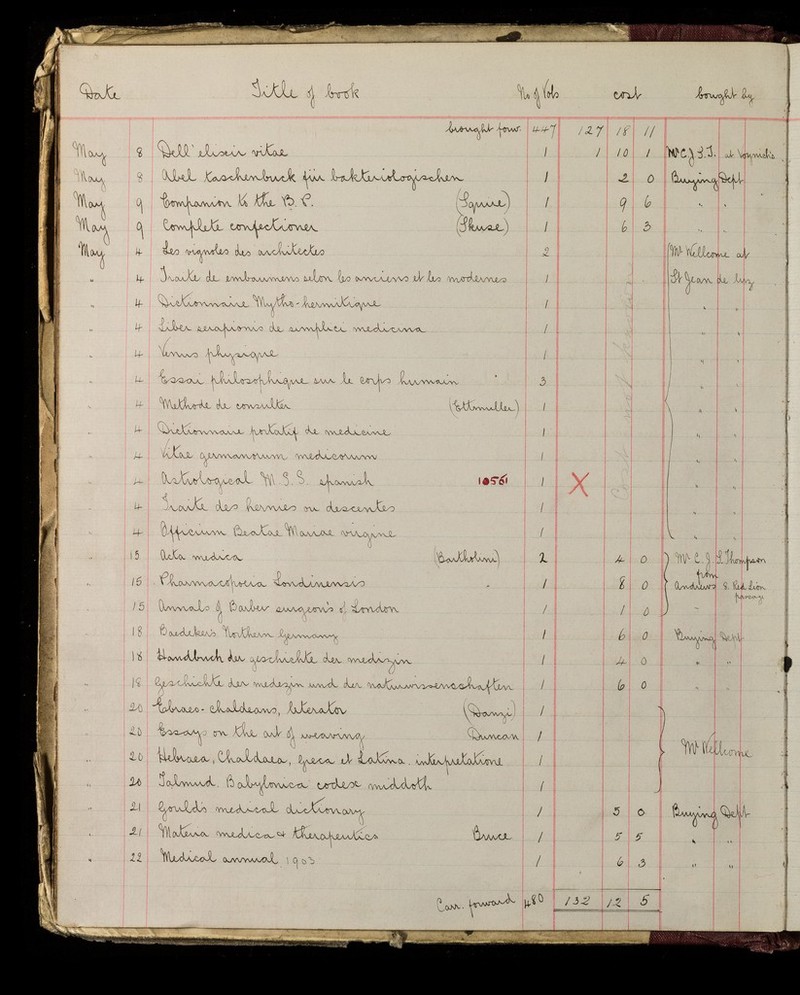 Date Title of book No of Vols cost bought by
brought forw. 447 127 18 11
May 8 Dell' elixir vitae 1 1 10 1 Mr C. J. S. T. at Voynichs
May 8 Abel taschenbuch für bakteriologischen 1 2 0 Buying Dept
May 9 Companion to the B. P. (Squire) 1 9 6 " "
May 9 Complete confectioner (Skuse) 1 6 3 " "
May 4 Les vignoles des architectes 2 Mr Wellcome at
" 4 Traite de embaumens selon les anciens et les modernes 1 St Jean de luz
" 4 Dictionnaire Mytho-hermitique 1 " "
" 4 Liber serapionis de simplici medicina 1
" 4 Venus physique 1 " "
" 4 Essai philosophique sur le corps humain 3
" 4 Methode de consulter (Ettmuller) 1 " "
" 4 Dictionnaire portatif de medicine 1 " "
" 4 Vitae germanorum medicorum 1 " "
" 4 Astrological M.S.S. spanish 10561 1 X " "
" 4 Traite des hernies ou descentes 1 " "
" 4 Officium Beatae Mariae virgine 1 " "
Cost not known
" 15 Acta medica (Bartholini) 2 4 0 Mr C. J. S. Thompson
from
" 15 Pharmacopoeia Londinensis 1 8 0 Andrews 8. Red Lion
passage
" 15 Annals of Barber surgeon's of London 1 1 0 "
" 18 Baedeker's Northern Germany 1 6 0 Buying Dept
" 18 Handbuch der geschichte der medizin 1 4 0 " "
" 18 Geschichte der medezin und der naturwissenschaften 1 6 0 " "
" 20 Ebraeo-chaldeans, literator (Danzi) 1
" 20 Essays on the art of weaving Duncan 1
" 20 Hebraea, Chaldaea, greca et Latina interpretatione 1 Mr Wellcome
" 20 Talmud. Babylonica codex middoth 1
" 21 Goulds medical dictionary 1 5 0 Buying Dept
" 21 Materia medica & therapeutics Bruce 1 5 5 " "
" 22 Medical annual 1903 1 6 3 " "
Carr. forward 480 132 12 5